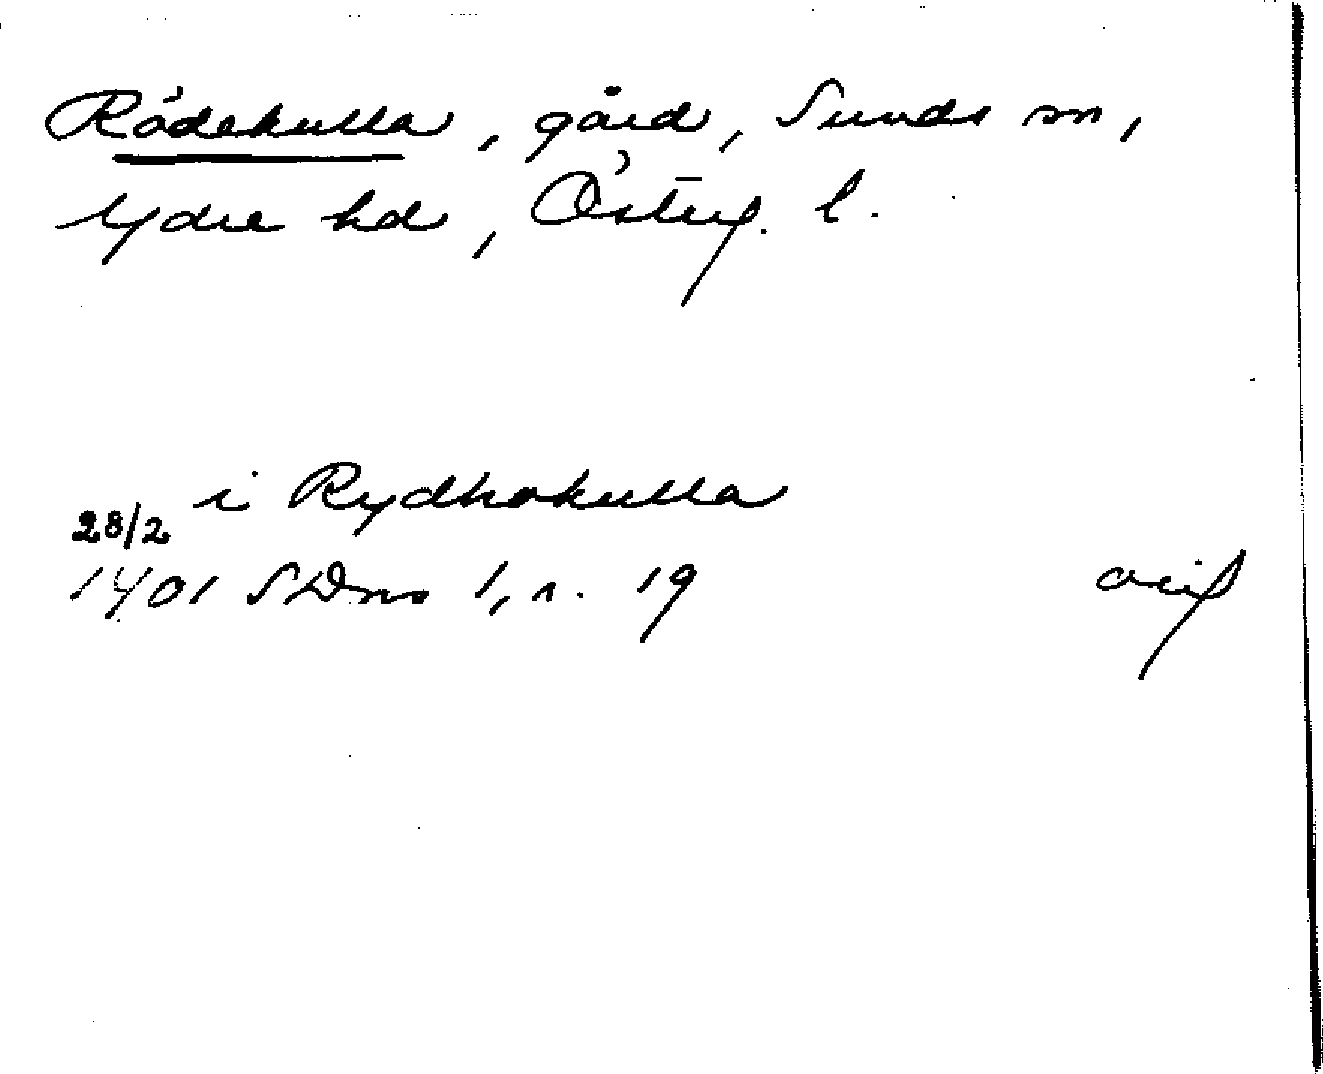 Rödekulla, gård, Sunds sn,
Ydre hd, Österg. l.
i Rydhakulla
28/2
1401 SDns 1, n. 19 orig